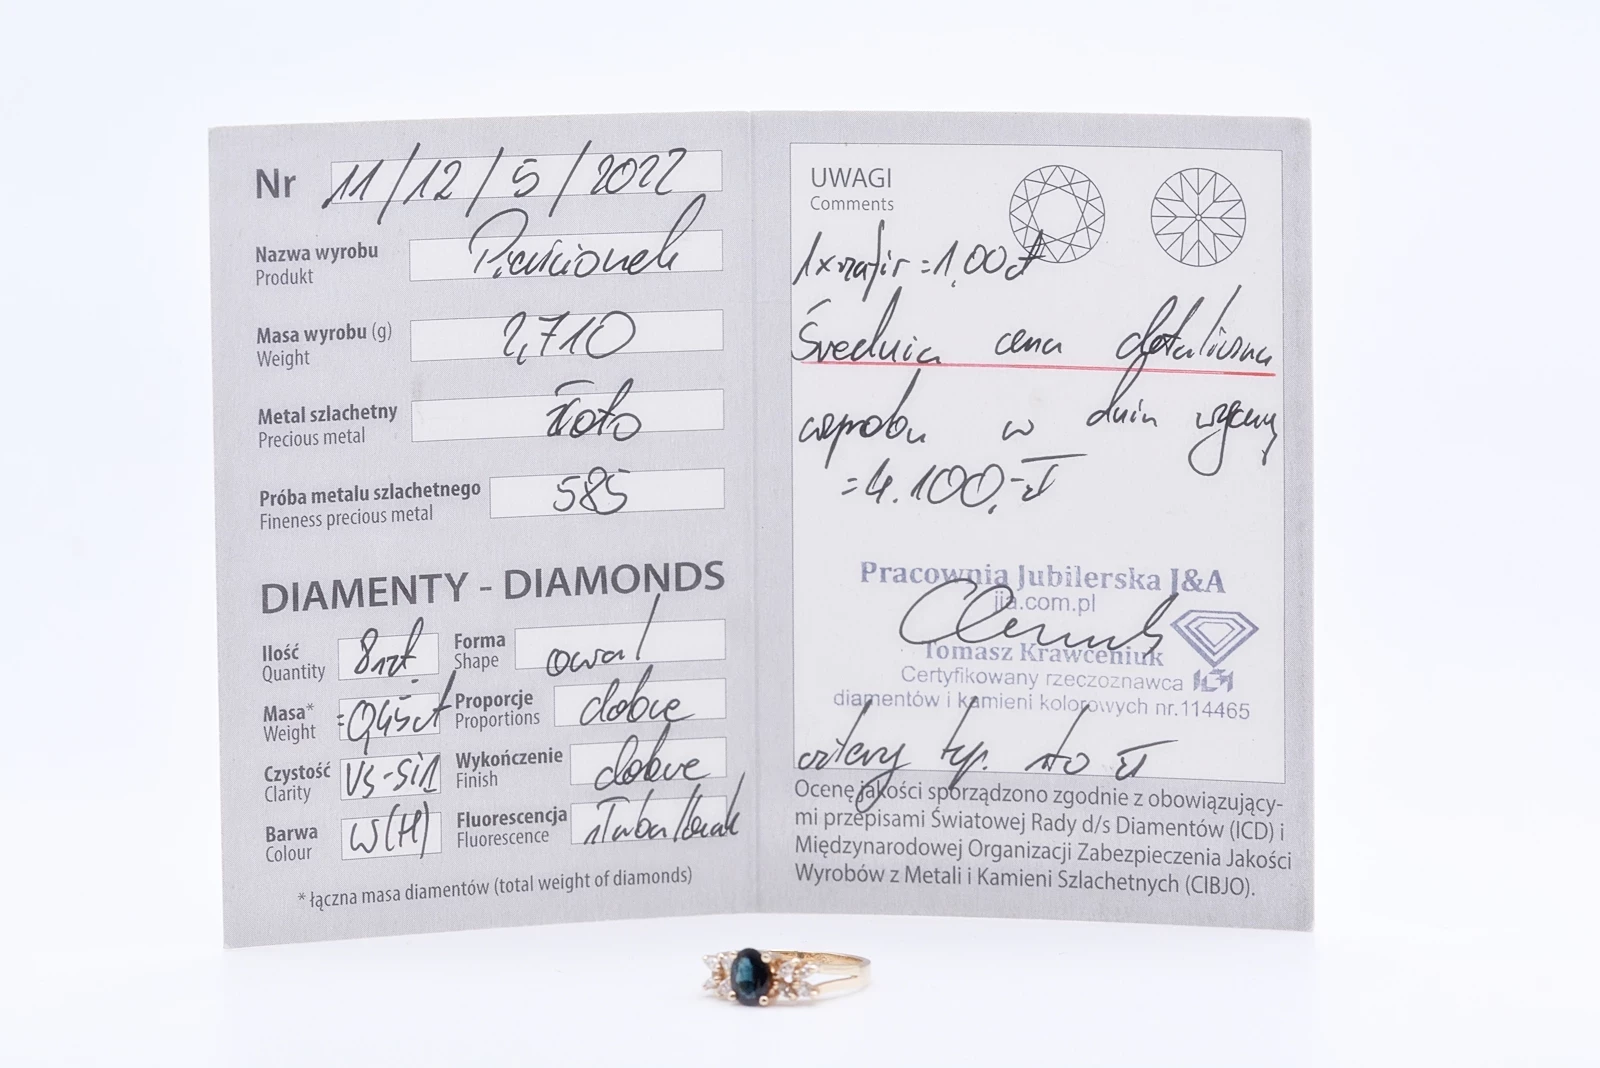 Nr 11/12/5/2022
Nazwa wyrobu Pierścionek
Produkt
Masa wyrobu (g) 2,710
Weight
Metal szlachetny Złoto
Precious metal
Próba metalu szlachetnego 585
Fineness precious metal
DIAMENTY - DIAMONDS
Ilość 8szt Forma owal
Quantity Shape
Masa* =0,45ct Proporcje dobre
Weight Proportions
Czystość VS-Si1 Wykończenie dobre
Clarity Finish
Barwa W(H) Fluorescencja słaba/brak
Colour Fluorescence
* łączna masa diamentów (total weight of diamonds)
UWAGI
Comments
1xszafir =1,00ct
Średnia cena detaliczna
wyrobu w dniu wyceny
=4.100,-zł
Pracownia Jubilerska J&A
jja.com.pl
Tomasz Krawceniuk
Certyfikowany rzeczoznawca
diamentów i kamieni kolorowych nr.114465
cztery tyś. sto zł
Ocenę jakości sporządzono zgodnie z obowiązujący-
mi przepisami Światowej Rady d/s Diamentów (ICD) i
Międzynarodowej Organizacji Zabezpieczenia Jakości
Wyrobów z Metali i Kamieni Szlachetnych (CIBJO).